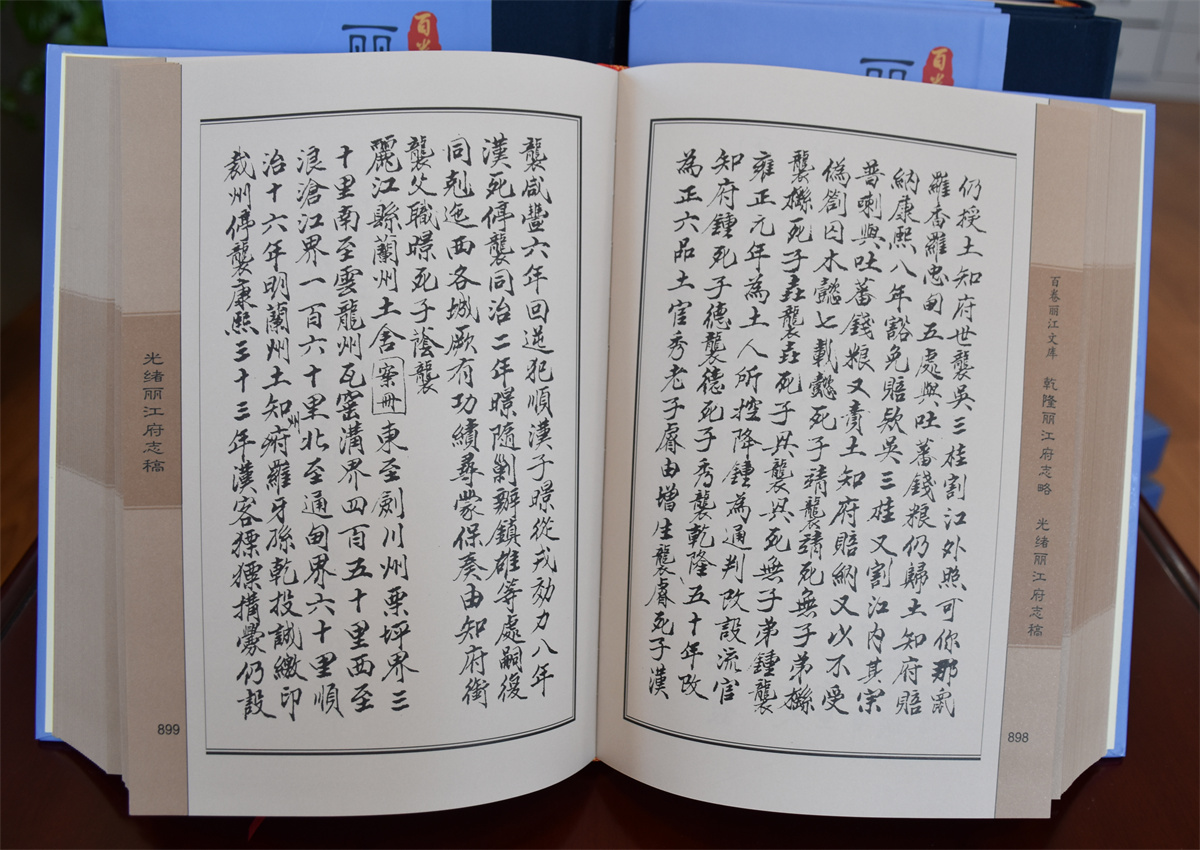 丽
百卷
丽
百卷
百卷丽江文库 乾隆丽江府志略 光绪丽江府志稿
898
仍授土知府世襲吳三桂割江外照可你那鼠
羅香羅忠甸五處與吐蕃錢粮仍歸土知府賠
納康熙八年豁免賠欵吳三桂又割江內其宗
普喇與吐蕃錢粮又責土知府賠納又以不受
偽劄囚木懿七載懿死子靖襲靖死無子弟櫾
襲櫾死子堯襲堯死子興襲興死無子弟鍾襲
雍正元年為土人所控降鍾為通判改設流官
知府鍾死子德襲德死子秀襲乾隆五十年改
為正六品土官秀老子睿由增生襲睿死子漢
襲咸豐六年回逆犯順漢子暻從戎効力八年
漢死停襲同治二年暻隨剿辦鎮雄等處嗣復
同剋迤西各城厥有功績尋蒙保奏由知府銜
襲父職暻死子蔭襲
麗江縣蘭州土舍案冊東至劍川州栗坪界三
十里南至雲龍州瓦窑溝界四百五十里西至
浪滄江界一百六十里北至通甸界六十里順
治十六年明蘭州土知州府羅牙孫乾投誠繳印
裁州停襲康熙三十三年漢客猓搆釁仍設
光绪丽江府志稿
899